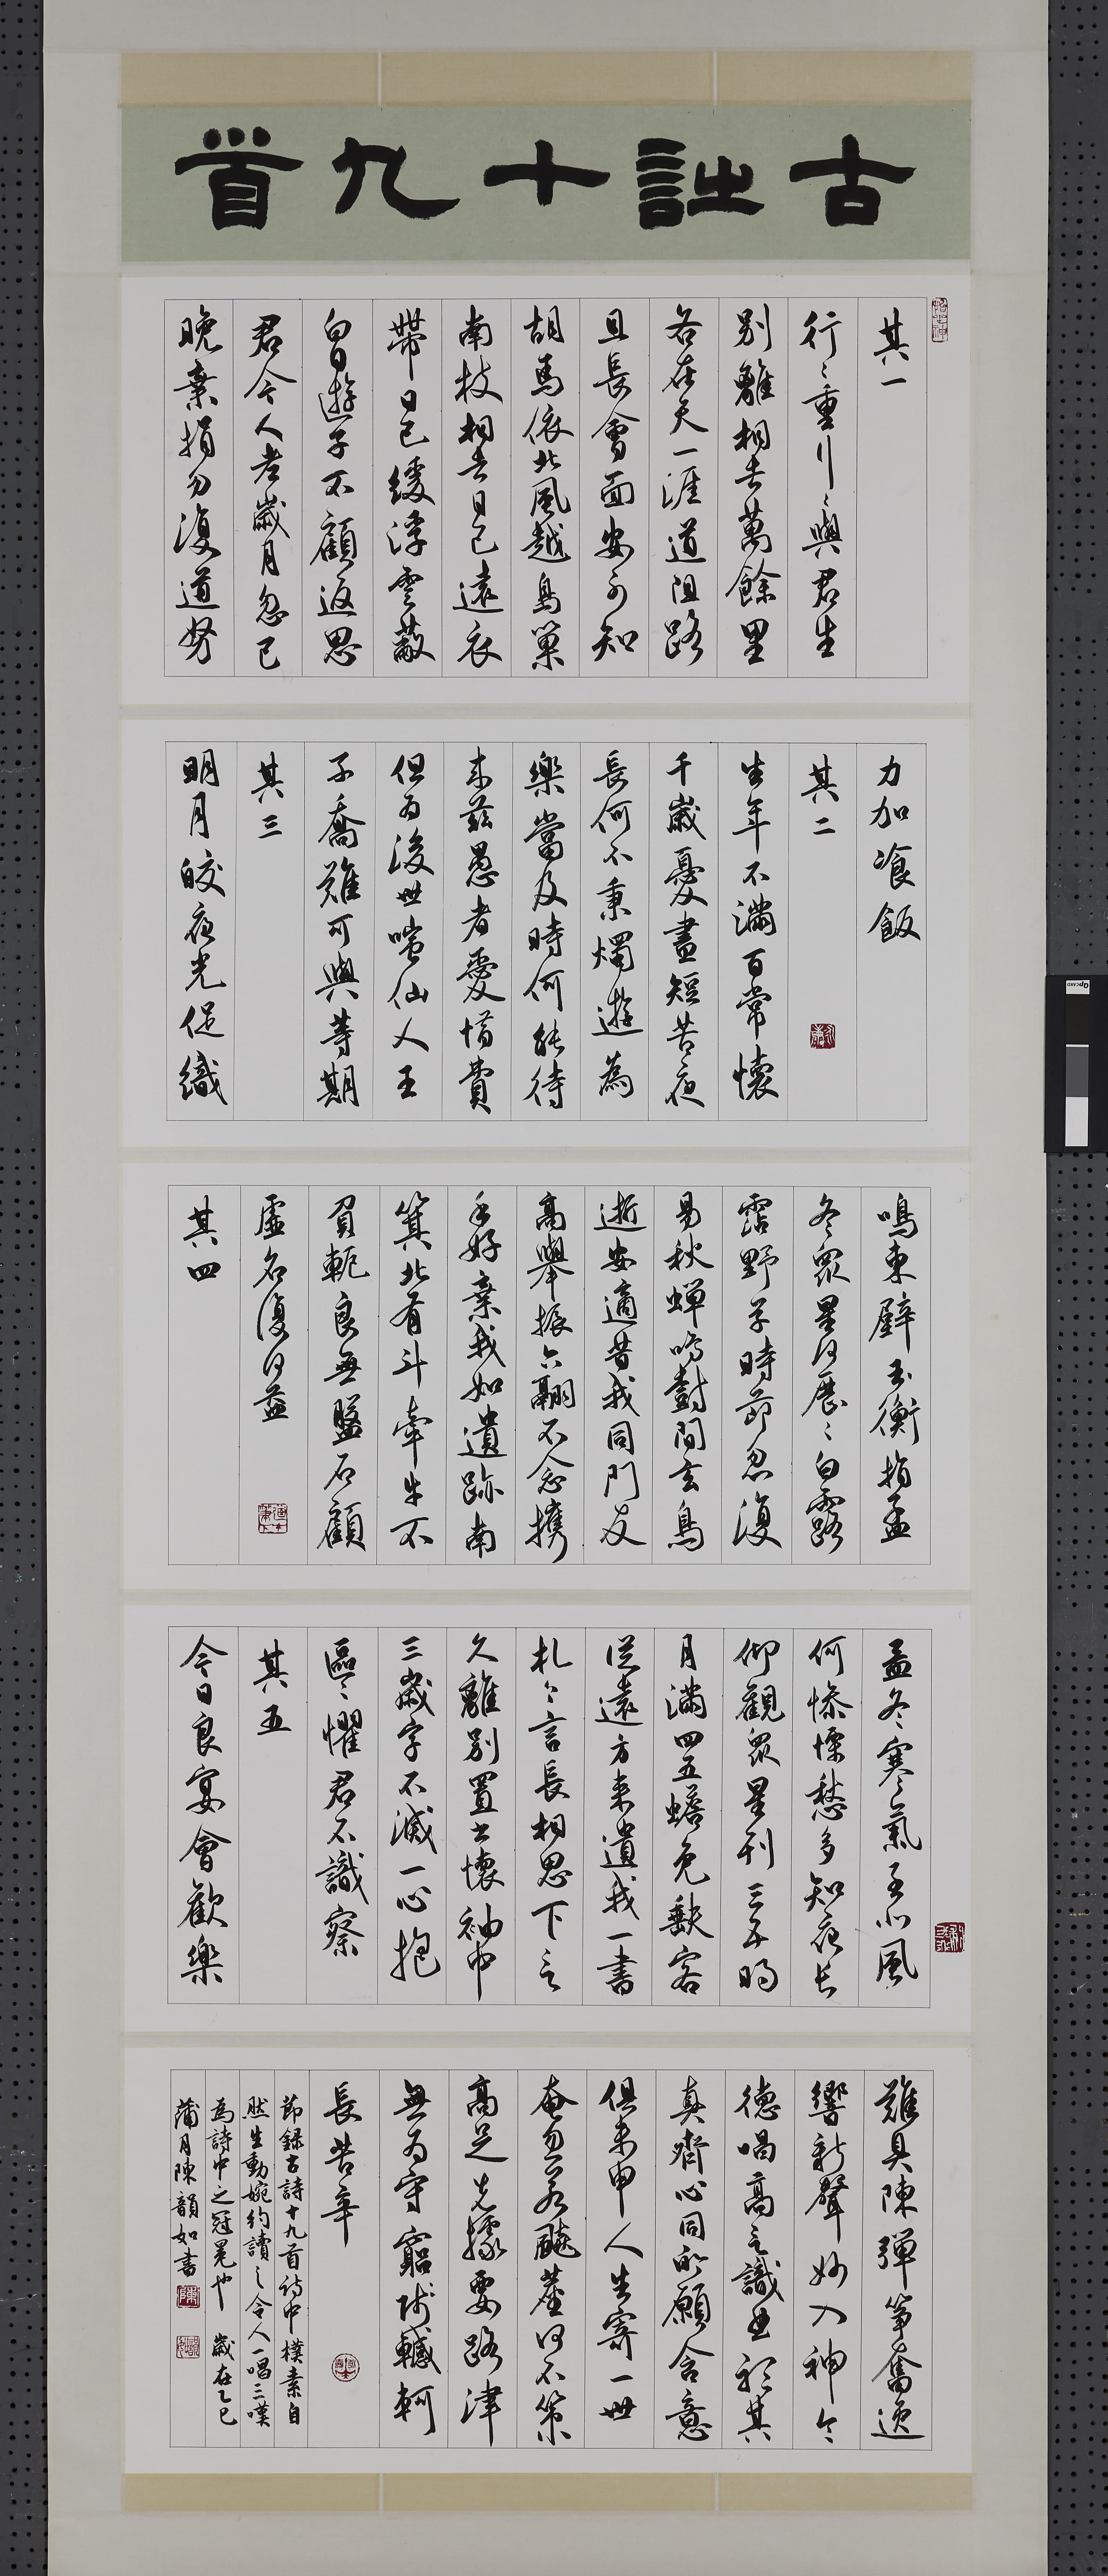 古詩十九首
其一
行行重行行與君生
別離相去萬餘里
各在天一涯道阻路
且長會面安可知
胡馬依北風越鳥巢
南枝相去日已遠衣
帶日已緩浮雲蔽
白日遊子不顧返思
君令人老歲月忽已
晚棄捐勿復道努
力加飡飯
其二
生年不滿百常懷
千歲憂晝短苦夜
長何不秉燭遊為
樂當及時何能待
來茲愚者愛惜費
但為後世嗤仙人王
子喬難可與等期
其三
明月皎夜光促織
鳴東壁玉衡指孟
冬眾星何歷歷白露
霑野草時節忽復
易秋蟬鳴樹間玄鳥
逝安適昔我同門友
高舉振六翮不念攜
手好棄我如遺跡南
箕北有斗牽牛不
負軛良無盤石顧
虛名復何益
其四
孟冬寒氣至北風
何慘慄愁多知夜長
仰觀眾星列三五明
月滿四五蟾兔缺客
從遠方來遺我一書
札上言長相思下言
久離別置書懷袖中
三歲字不滅一心抱
區區懼君不識察
其五
今日良宴會歡樂
難具陳彈箏奮逸
響新聲妙入神令
德唱高言識曲聽其
真齊心同所願含意
俱未申人生寄一世
奄忽若飆塵何不策
高足先據要路津
無為守窮賤轗軻
長苦辛
節錄古詩十九首詩中樸素自
然生動婉約讀之令人一唱三嘆
為詩中之冠冕也 歲在乙巳
蒲月陳韻如書